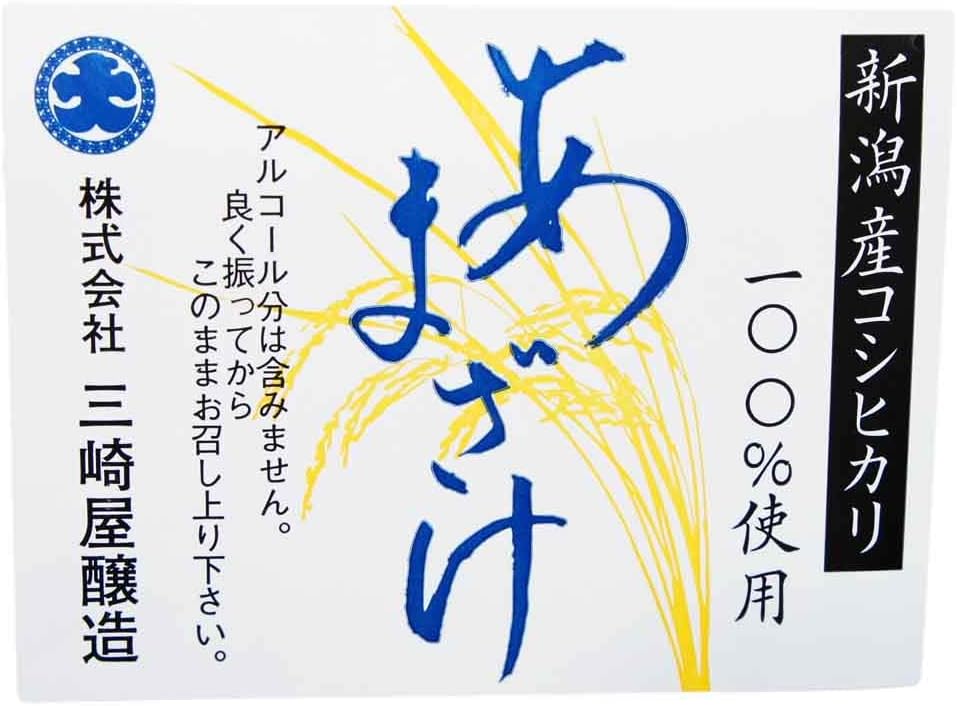 新潟産コシヒカリ
一〇〇%使用
あまざけ
アルコール分は含みません。
良く振ってから
このままお召し上り下さい。
株式会社 三崎屋醸造